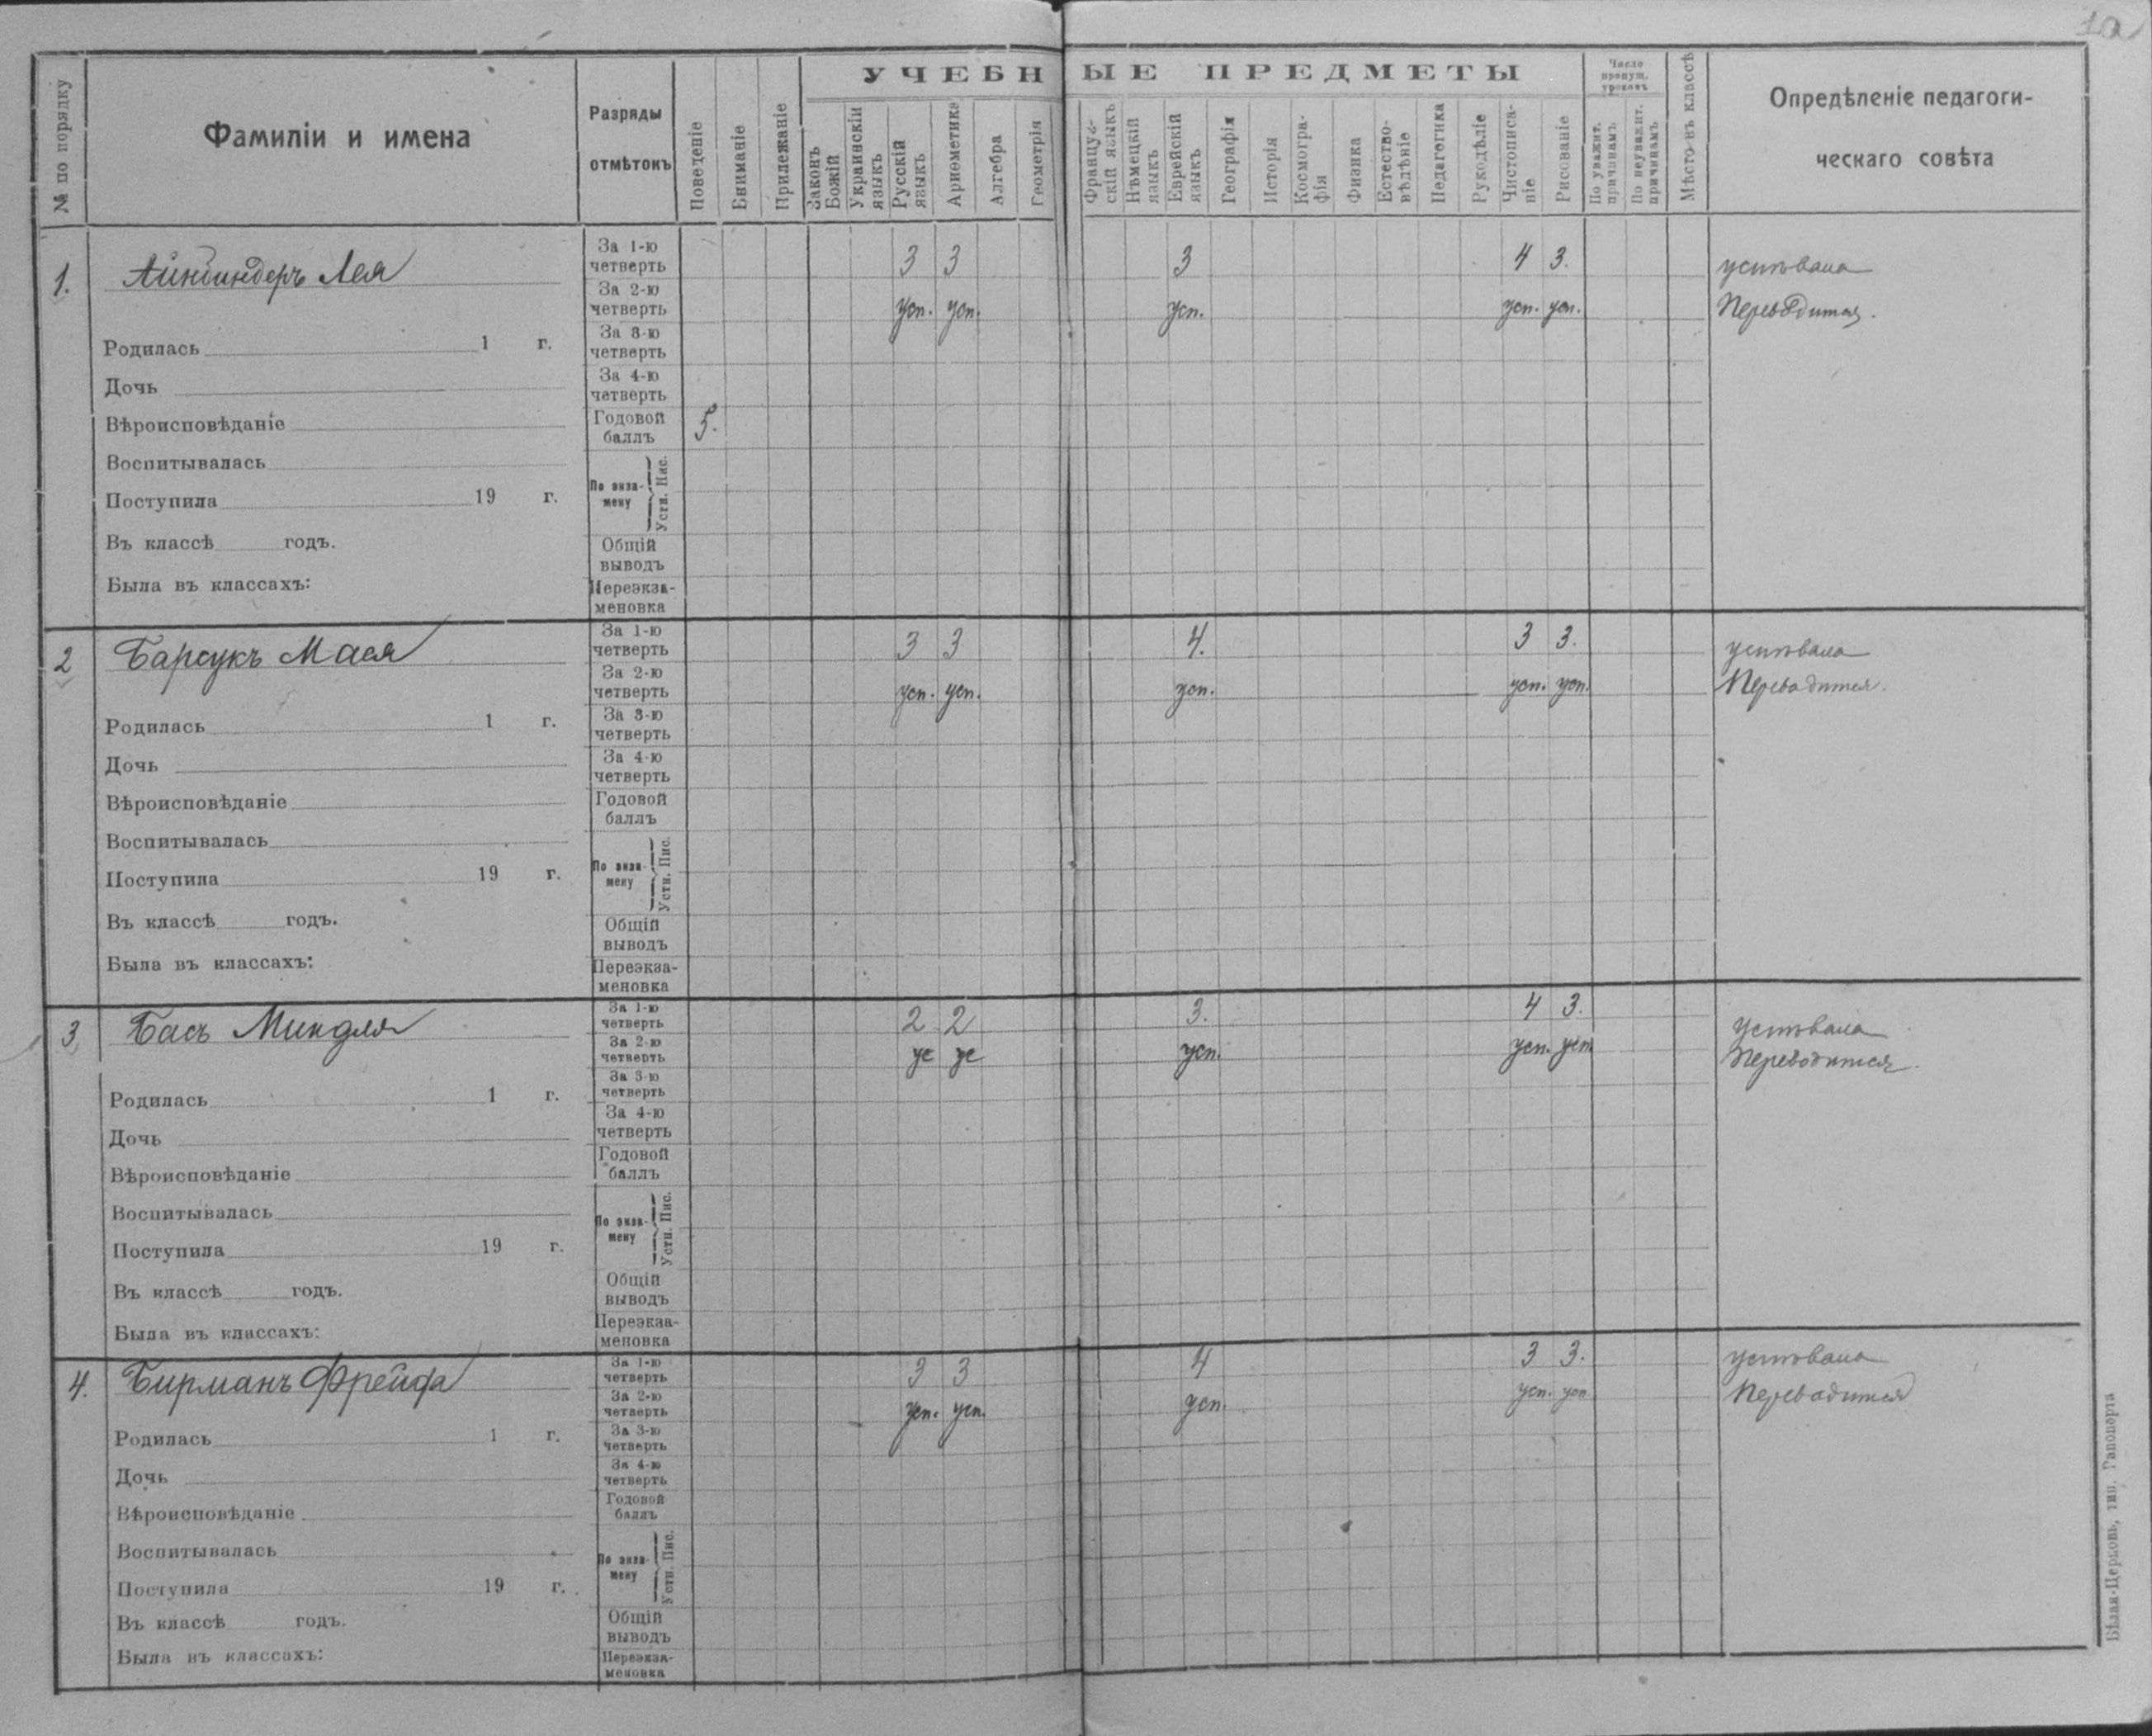 1а
УЧЕБНЫЕ ПРЕДМЕТЫ
№ по порядку
Фамиліи и имена
Разряды отмѣтокъ
Поведеніе
Вниманіе
Прилежаніе
Законъ Божій
Украинскій языкъ
Русскій языкъ
Ариѳметика
Алгебра
Геометрія
Француз-скій языкъ
Нѣмецкій языкъ
Еврейскій языкъ
Географія
Исторія
Космогра-фія
Физика
Естество-вѣдѣніе
Педагогика
Рукодѣліе
Чистописа-ніе
Рисованіе
Число пропущ. уроковъ
По уважит. причинамъ
По неуважит. причинамъ
Мѣсто въ классѣ
Опредѣленіе педагоги-
ческаго совѣта
1. Айнбиндеръ Лея
За 1-ю четверть 3 3 3 4 3. успѣвала
За 2-ю четверть усп. усп. усп. усп. усп. Переводится.
За 3-ю четверть
Родилась 1 г.
За 4-ю четверть
Дочь
Годовой баллъ 5.
Вѣроисповѣданіе
Воспитывалась
По экза-мену Устн. Пис.
Поступила 19 г.
Въ классѣ годъ.
Общій выводъ
Была въ классахъ:
Переэкза-меновка
2 Барсукъ Мася
За 1-ю четверть 3 3 4. 3 3. успѣвала
За 2-ю четверть усп. усп. усп. усп. усп. Переводится.
За 3-ю четверть
Родилась 1 г.
За 4-ю четверть
Дочь
Годовой баллъ
Вѣроисповѣданіе
Воспитывалась
По экза-мену Устн. Пис.
Поступила 19 г.
Въ классѣ годъ.
Общій выводъ
Была въ классахъ:
Переэкза-меновка
3 Басъ Миндля
За 1-ю четверть 2 2 3. 4 3. Успѣвала
За 2-ю четверть ус ус усп. усп. усп. Переводится.
За 3-ю четверть
Родилась 1 г.
За 4-ю четверть
Дочь
Годовой баллъ
Вѣроисповѣданіе
Воспитывалась
По экза-мену Устн. Пис.
Поступила 19 г.
Въ классѣ годъ.
Общій выводъ
Была въ классахъ:
Переэкза-меновка
4. Бирманъ Фрейда
За 1-ю четверть 3 3 4 3 3. успѣвала
За 2-ю четверть усп. усп. усп. усп. усп Переводится
За 3-ю четверть
Родилась 1 г.
За 4-ю четверть
Дочь
Годовой баллъ
Вѣроисповѣданіе
Воспитывалась
По экза-мену Устн. Пис.
Поступила 19 г.
Въ классѣ годъ.
Общій выводъ
Была въ классахъ:
Переэкза-меновка
Бѣлая-Церковь, тип. Рапопорта